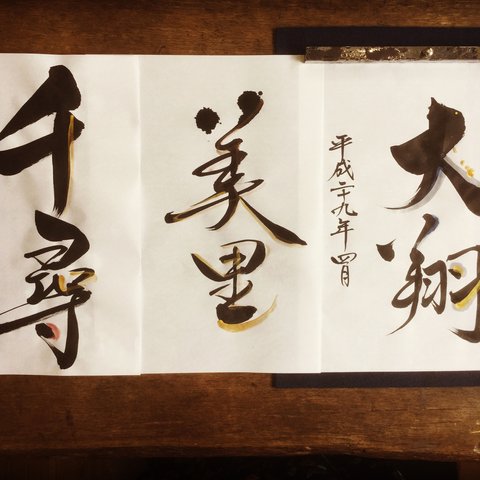 大翔
平成二十九年四月
美里
千尋